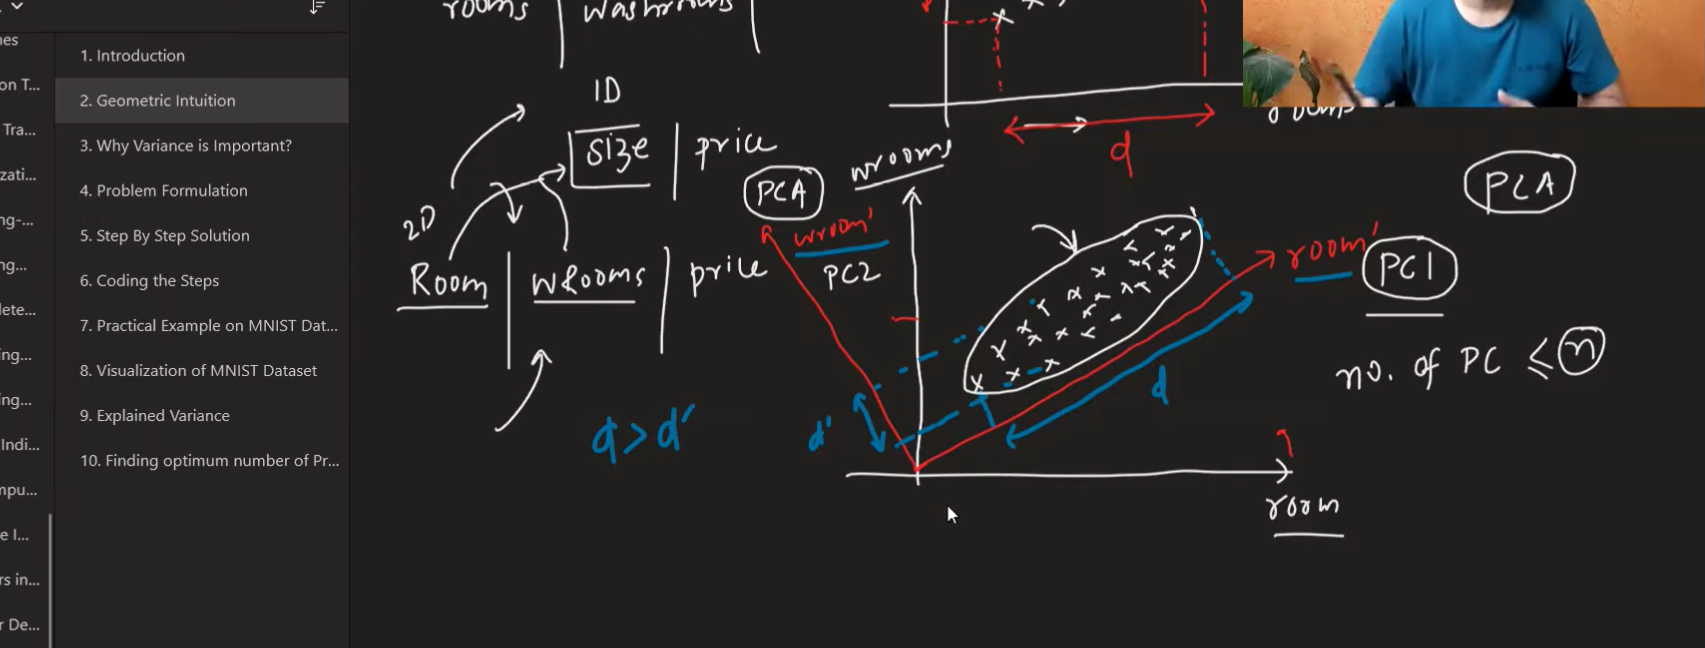 nes
on T...
Tra...
zati...
ng-...
ng...
lete...
ing...
ing...
Indi...
mpu...
e I...
rs in...
r De...
1. Introduction
2. Geometric Intuition
3. Why Variance is Important?
4. Problem Formulation
5. Step By Step Solution
6. Coding the Steps
7. Practical Example on MNIST Dat...
8. Visualization of MNIST Dataset
9. Explained Variance
10. Finding optimum number of Pr...
rooms | washrooms |
1D
Size | price
2D
Room | wRooms | price
d > d'
d
rooms
PCA
wrooms
wroom'
PC2
room'
PC1
d'
d
room
PCA
no. of PC ≤ n